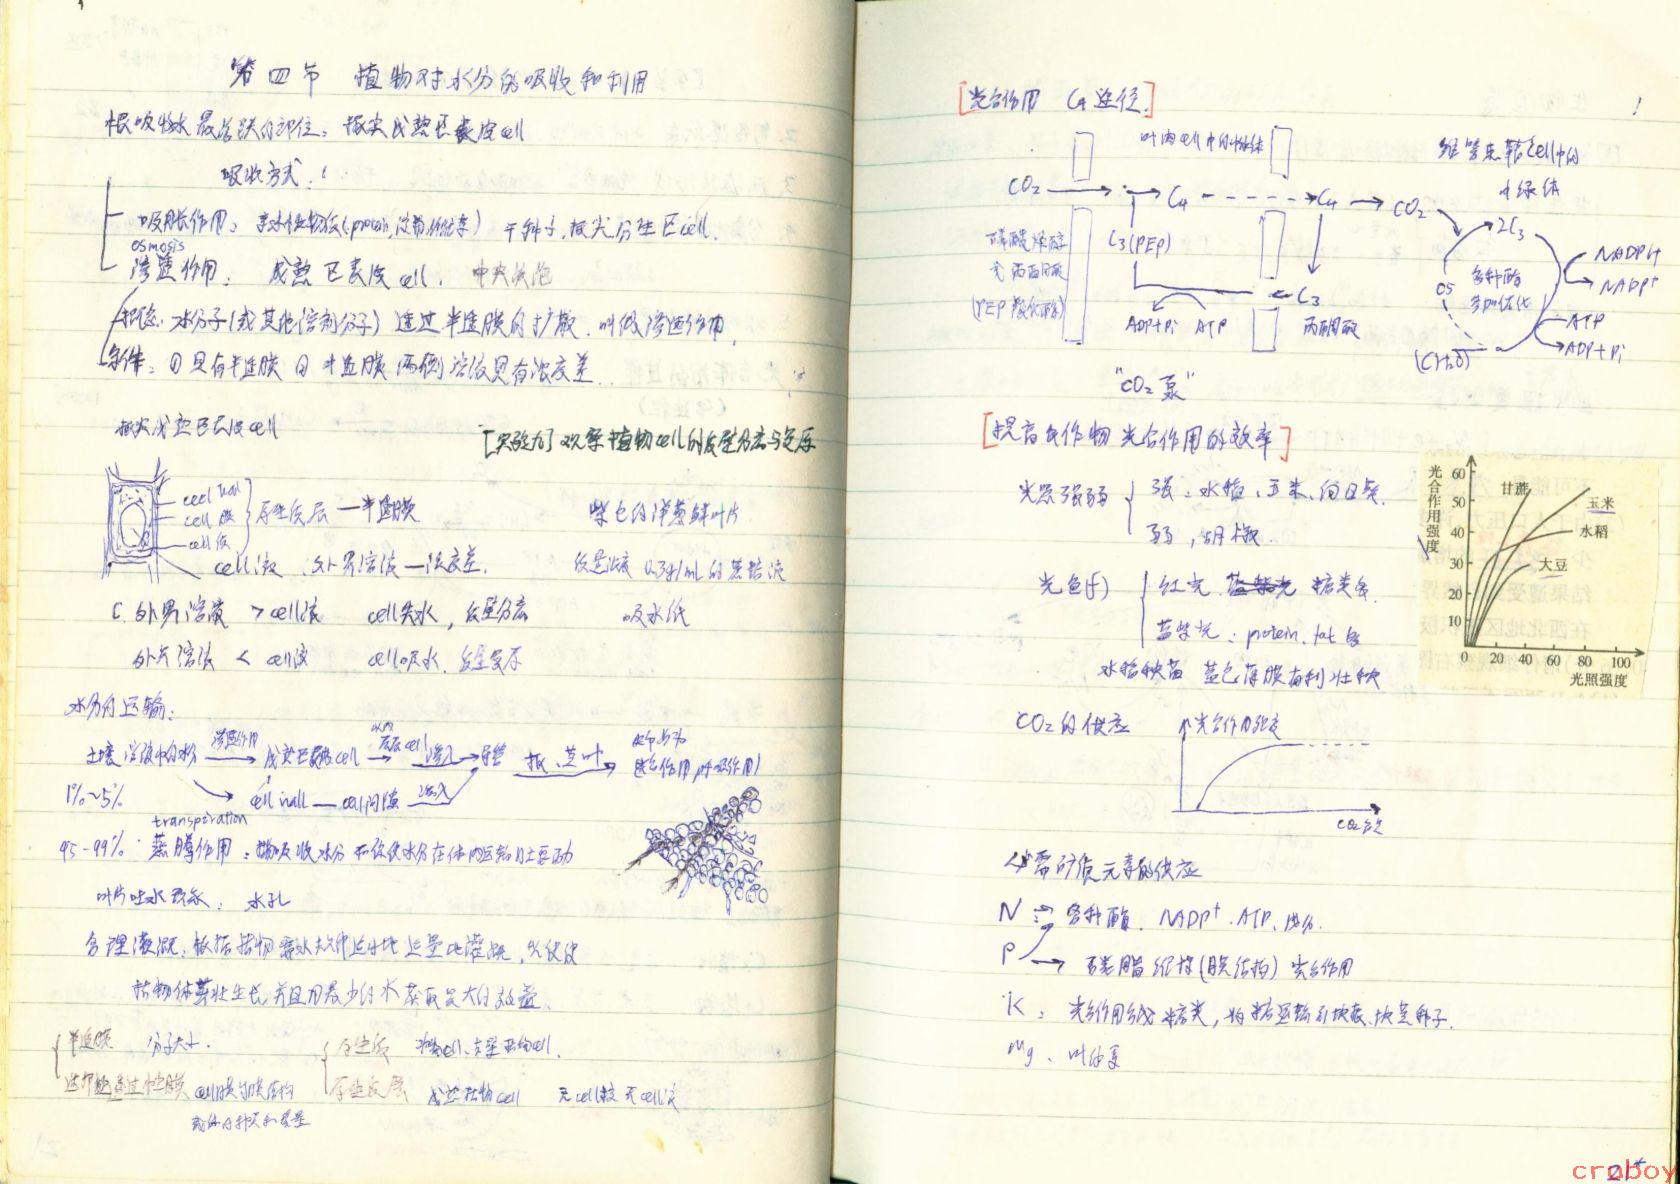 第四节 植物对水分的吸收和利用
根吸收水最活跃的部位：根尖成熟区表皮cell
吸收方式：！
吸胀作用：亲水性物质(protein,淀粉,纤维素) 干种子,根尖分生区cell.
osmosis
渗透作用： 成熟区表皮cell. 中央液泡
概念：水分子(或其他溶剂分子)透过半透膜的扩散.叫做渗透作用.
条件：①具有半透膜 ②半透膜两侧溶液具有浓度差.
根尖成熟区表皮cell
[实验九]观察植物cell的质壁分离与复原
cell wall
cell膜
cell质
原生质层—半透膜
紫色的洋葱鳞叶片
cell液、外界溶液—浓度差.
0.3g/mL的蔗糖液
吸水纸
C.外界溶液 > cell液 cell失水,质壁分离
外界溶液 < cell液 cell吸水.质壁复原
水分的运输：
土壤溶液中的水分
渗透作用
成熟区表皮cell
层层cell
渗入
导管
根、茎、叶
1%~5%
光合作用,呼吸作用)
cell wall — cell间隙
渗入
transpiration
95-99% 蒸腾作用：植物吸收水分和促使水分在体内运输的主要动力
叶片吐水现象： 水孔
合理灌溉：根据植物需水规律适时地适量地灌溉,以便使
植物体茁壮生长,并且用最少的水获取最大的效益.
半透膜 分子大小.
选择透过性膜 cell膜等膜结构
载体的种类和数量
原生质 动物cell、
原生质层 成熟植物cell 无cell核 无cell液
[光合作用 C4途径.]
叶肉cell中的叶绿体
维管束鞘cell中的
叶绿体
CO2
C4
C4
CO2
2C3
C3(PEP)
磷酸烯醇
式丙酮酸
(PEP羧化酶)
ADP+Pi ATP
C3
丙酮酸
C5
多种酶
参加催化
NADPH
NADP+
ATP
ADP+Pi
(CH2O)
“CO2泵”
[提高农作物光合作用的效率]
光照强弱
强：水稻、玉米、向日葵
弱：胡椒.
光色(f)
红光 糖类多.
蓝紫光：protein、fat多
水稻秧苗 蓝色薄膜有利壮秧
光合作用强度
60
50
40
30
20
10
0
20 40 60 80 100
光照强度
甘蔗
玉米
水稻
大豆
CO2的供应
光合作用强度
CO2含量
必需矿质元素的供应
N 各种酶、NADP+、ATP、成分.
P 磷脂 维持(膜结构) 光合作用
K：光合作用合成糖类,将糖运输到块根、块茎、种子.
Mg、叶绿素
21
cruboy